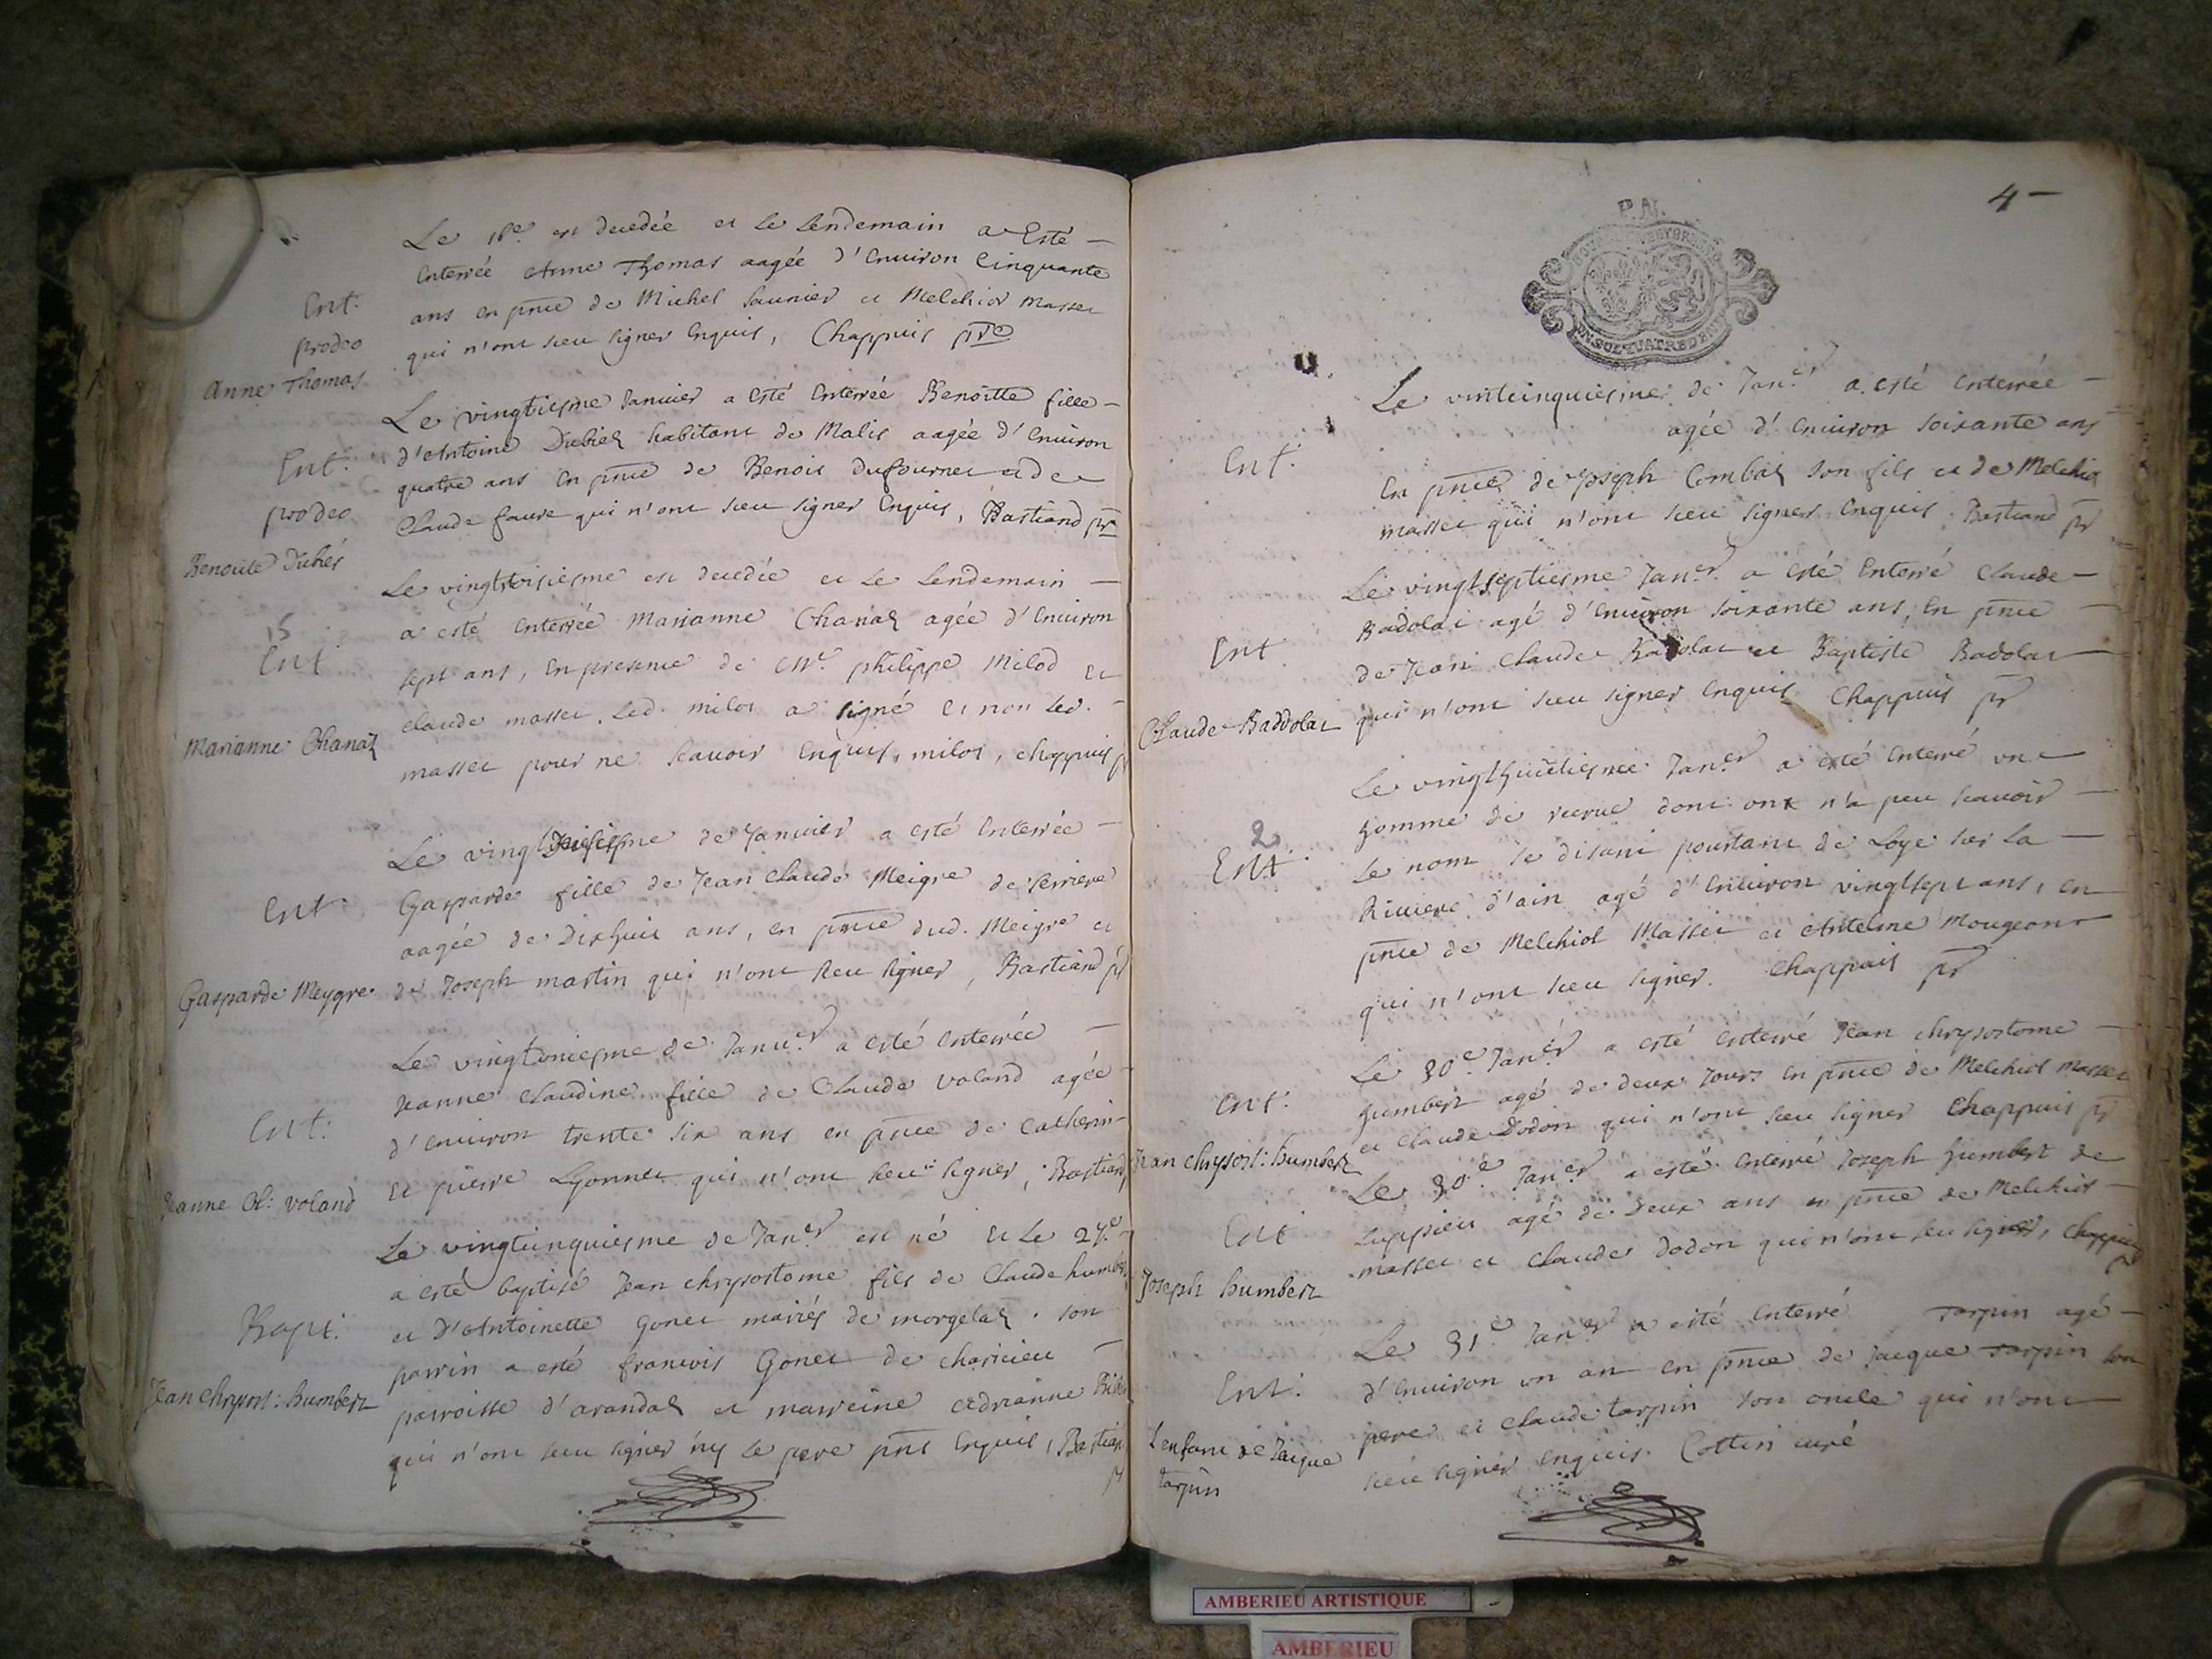 Le 18e est decedée et le lendemain a Esté
Ent. enterrée Anne Thomas aagée d'Environ Cinquante
prodeo ans en pnce de Michel Saunier et Melchior masset
Anne Thomas qui n'ont sceu signer Enquis, Chappuis pre
Le vingtiesme Januier a Esté Enterrée Benoitte fille
Ent. d'Antoine Dubiez habitant de Malix aagée d'Enuiron
prodeo quatre ans En pnce de Benoit dufournet et de
Claude faure qui n'ont sceu signer Enquis, Bastiand pr
Benoite Dubiés
Le vingttroisiesme est decedée et le lendemain
15
Ent. a esté enterrée Marianne Chanaz agée d'Enuiron
sept ans, En presence de Mre philippe Milod et
claude masset. Led. milot a signé et non led.
Marianne Chanaz masset pour ne scauoir Enquis, milot, chappuis pr
Le vingt me de Januier a esté Enterrée
Ent. Gasparde fille de Jean Claude Meigre de serriere
aagée de Dixhuit ans, en pnce dud. Meigre et
Gasparde Meygre de Joseph martin qui n'ont sceu signer, Bastiand pr
Le de Januer a esté Enterrée
Jeanne Claudine fille de Claude Voland agée
Ent. d'enuiron trente six ans en pnce de Catherin
Jeanne Cl: Voland et pierre Lyonnet qui n'ont sceu signer, Bastiand
Le vingtcinquiesme de Janer est né et Le 27e
a esté baptisé Jean chrysostome fils de Claude humbert
Bapt. et d'Antoinette Gonet mariés de morgelaz. son
parrin a esté francois Gonet de charicieu
Jean Chrysost: humbert parroisse d'arandaz et marreine Adrianne
qui n'ont sceu signer ny le pere pnt Enquis, Bastian
pr
4
P.N.
Le vintcinquiesme de Janer a esté enterrée
Ent. agée d'Enuiron soixante ans
En pnce de Joseph Combaz son fils et de Melchior
masset qui n'ont sceu signer Enquis. Bastiand pr
Le vingtseptiesme Janer a esté Enterré Claude
Ent Badolat agé d'Enuiron soixante ans, En pnce
de Jean Claude Badolat et Baptiste Badolat
Claude Baddolat qui n'ont sceu signer Enquis Chappuis pr
Le vingthuictiesme Janer a esté Enterré un
2 homme de recrue dont ont n'a peu scauoir
Ent. le nom se disant pourtant de Loye sur la
Riuiere d'ain agé d'Enuiron vingtsept ans, en
pnce de Melchiot Masset et Antelme Mougeont
qui n'ont sceu signer. Chappuis pr
Le 30e Janer a esté Enterré Jean chrysostome
Ent. humbert agé de deux Jours En pnce de Melchiot Masset
et Claude Dodon qui n'ont sceu signer Chappuis pr
Jean chrysost: humbert Le 30e Janer a esté Enterré Joseph humbert de
Ent Luppieu agé de Deux ans en pnce de Melchiot
masset et Claude Dodon qui n'ont sceu signer, Chappuis
Joseph humbert pr
Le 31e Janer a esté Enterré tarpin agé
Ent. d'Enuiron un an en pnce de Jacque tarpin son
L'enfant de Jaique pere et Claude tarpin son oncle qui n'ont
tarpin sceu signer enquis. Cottin curé
AMBERIEU ARTISTIQUE
AMBERIEU